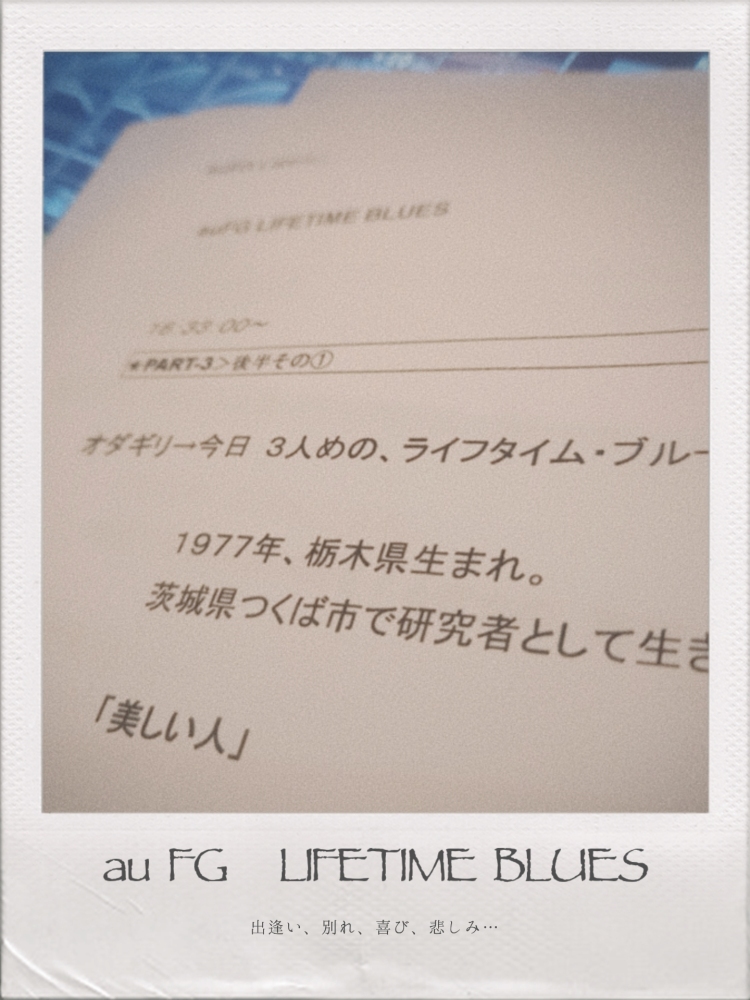 auFG LIFETIME BLUES
16:33:00〜
★PART-3＞後半その①
オダギリ→今日 3人めの、ライフタイム・ブルー
1977年、栃木県生まれ。
茨城県つくば市で研究者として生き
「美しい人」
au FG LIFETIME BLUES
出逢い、別れ、喜び、悲しみ…